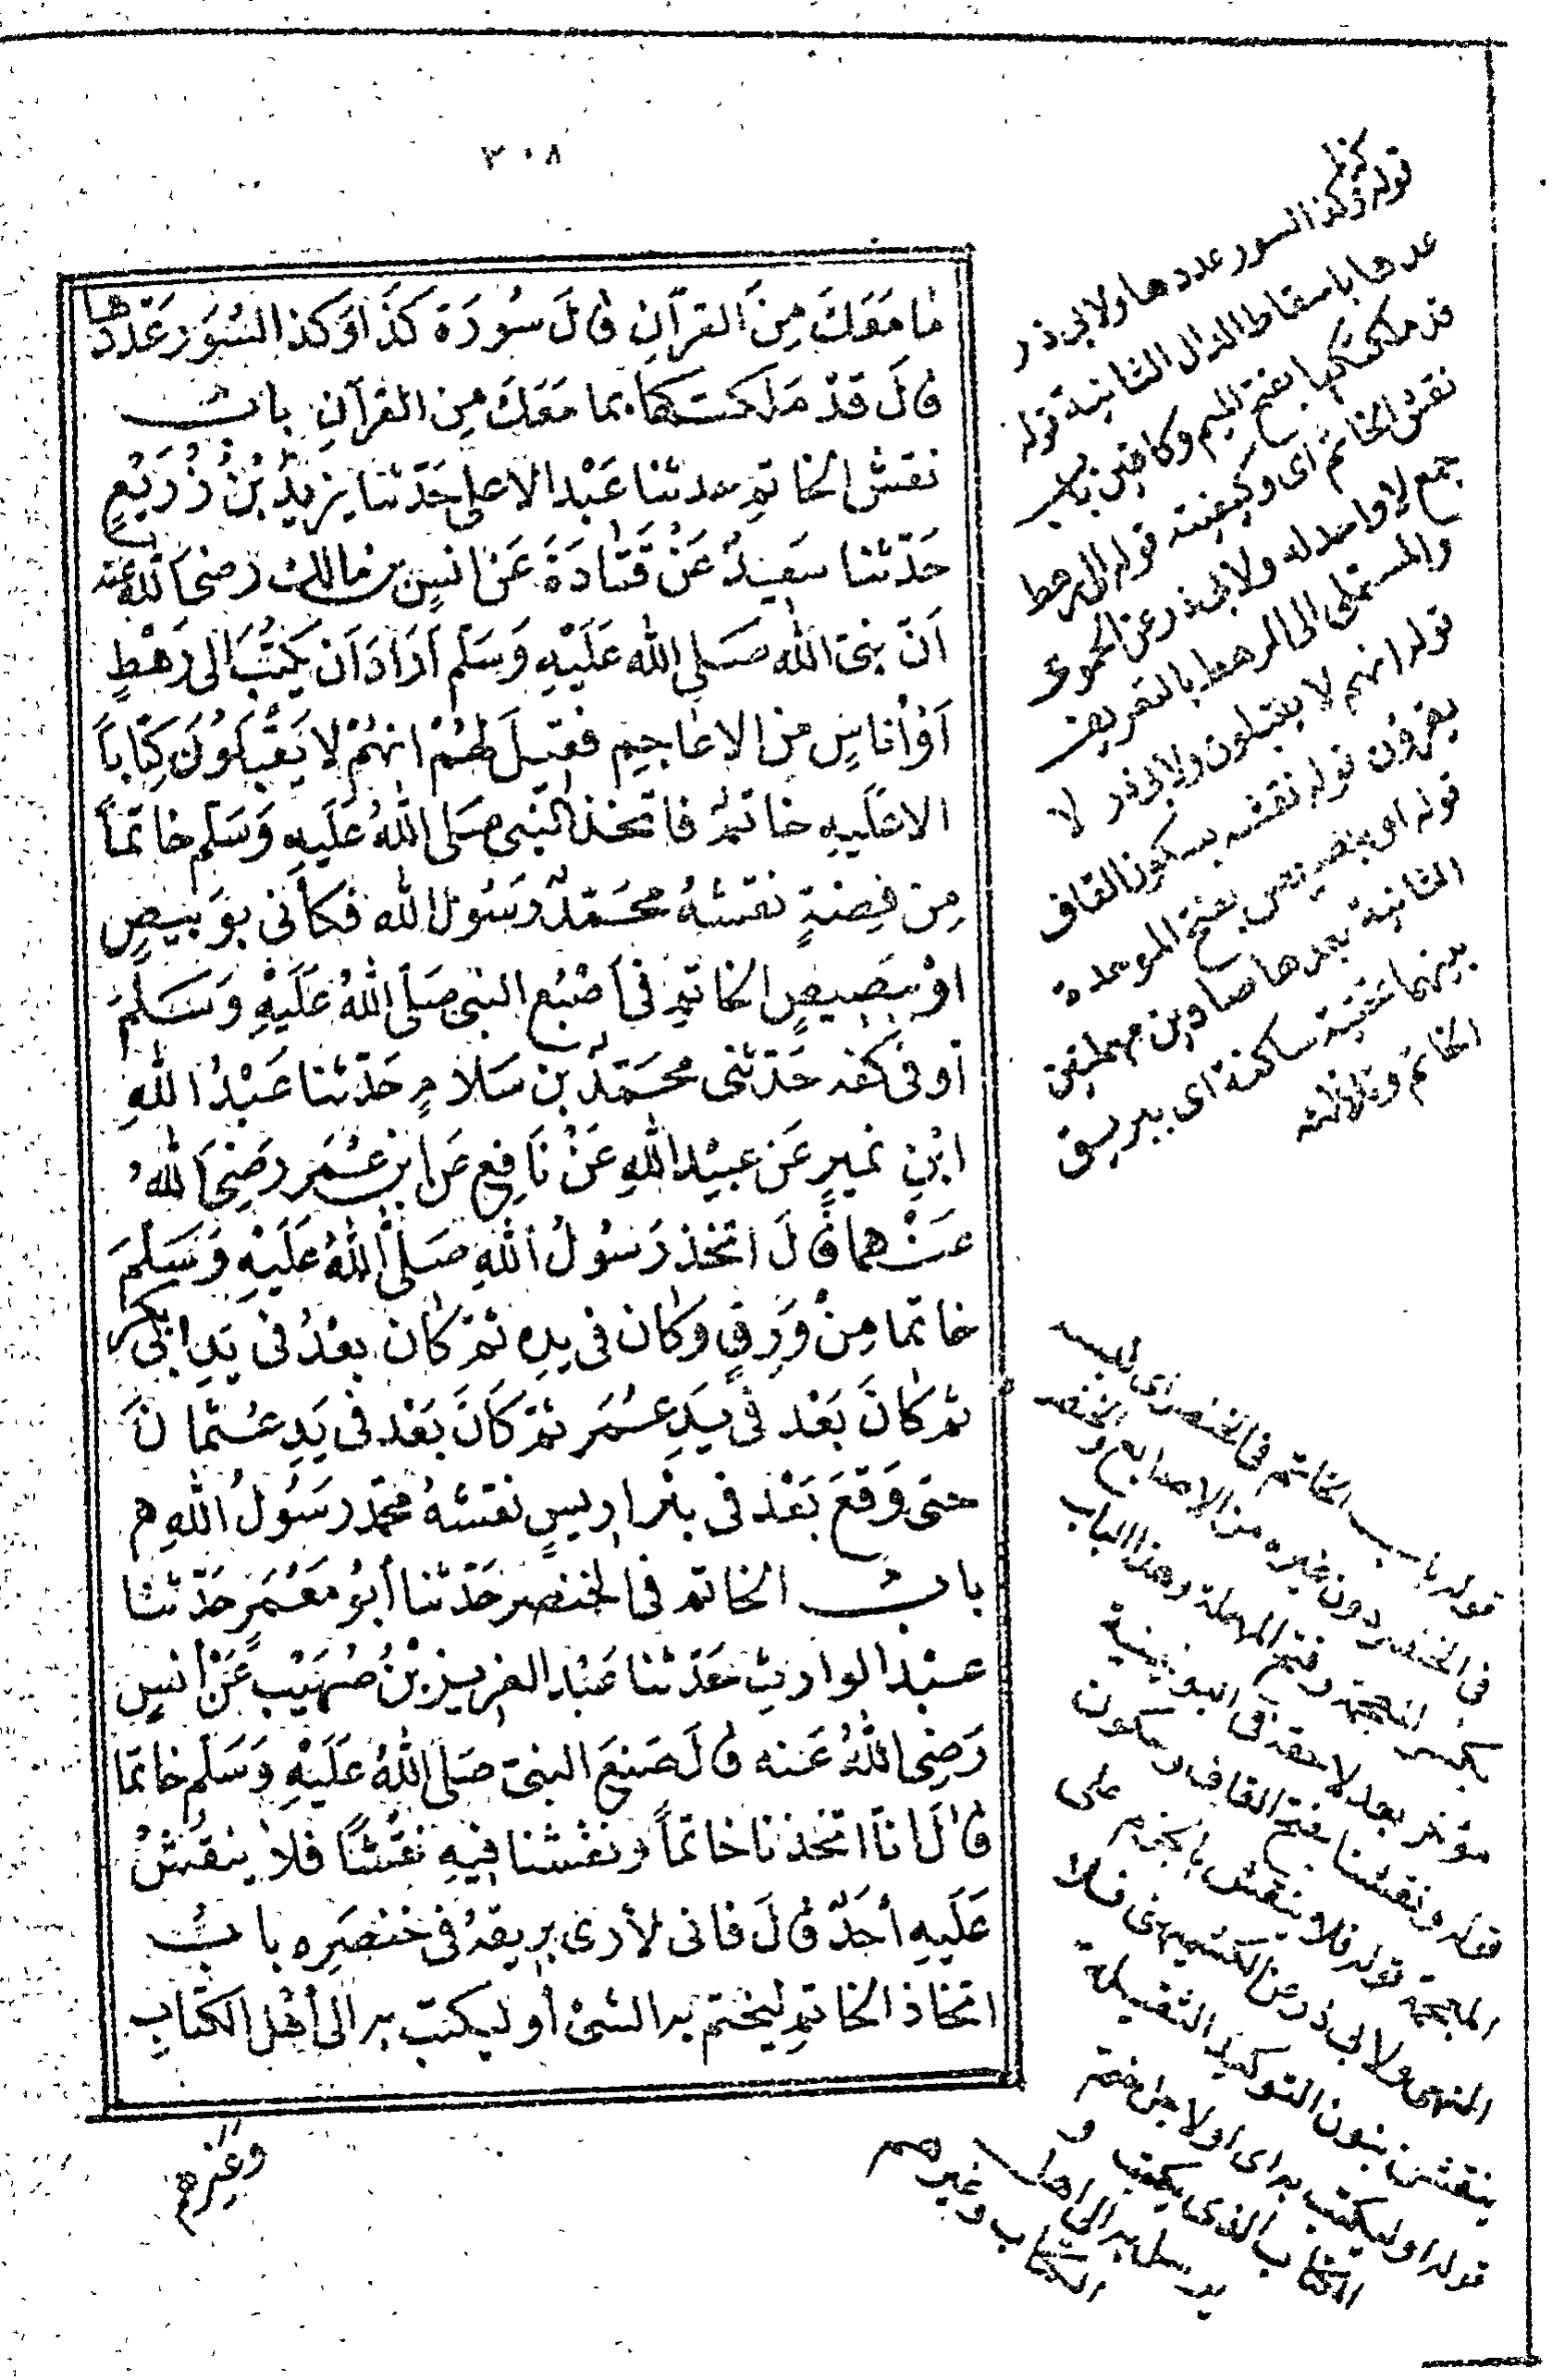 ٣٠٨
مَا مَعَكَ مِنَ القرآنِ قَالَ سُورَة كَذَا وَكَذا السُّوَرِ عَدَّدَهَا
قالَ قَدْ مَلَّكْتُكَهَا بما مَعَكَ مِن القرآنِ بابُ
نقش الخاتمِ حدثنا عَبْد الاعلى حَدّثنا يزيدُ بْنُ زُرَيْعٍ
حَدّثنا سَعِيدٌ عَنْ قَتادَةَ عَن انسِ بن مالك رَضىَ اللهُ عنه
اَنّ نبىّ الله صَلى الله عَلَيْهِ وَسَلّم اَرَادَ اَن يَكْتُبَ الى رَهْطٍ
اَوْ أناسٍ مِن الاعَاجِمِ فقيلَ لهُمْ انهُمْ لا يَقْبَلُونَ كِتَاباً
الا عَلَيهِ خاتمٌ فاتخذ النّبى صَلى اللهُ عَلَيهِ وَسَلم خاتَماً
مِن فِضةٍ نقشهُ محَمّدٌ رسُول الله فكأنى بوَبيصِ
اوْ ببَصيصِ الخاتمِ فى اَصْبُع النبى صَلى اللهُ عَلَيْهِ وَسَلّمَ
أو فى كفه حَدّثنى محَمّدُ بن سَلامٍ حَدّثنا عَبْدُ اللهِ
ابْنِ نميرٍ عَن عبيْد اللهِ عَنْ نَافِعٍ عَن ابن عُمَر رضِىَ اللهُ
عَنْهما قالَ اتخذ رَسُولُ اللهِ صَلّى اللهُ عَلَيْهِ وَسَلّمَ
خاتما مِنْ وَرِقٍ وَكان فى يدِهِ ثمّ كانَ بعْدُ فى يَدِ ابى بكر
ثمّ كانَ بَعْد فى يَدِ عُمَر ثمّ كَانَ بَعْد فى يَدِ عُثمانَ
حتى وَقَعَ بَعْد فى بئر اريسٍ نقشهُ محمّد رسَولُ اللهِ م
بابُ الخاتم فى الخنصر حَدّثنا أبُو مَعْمَرٍ حَدّثنا
عبْد الوارثِ حَدّثنا عَبْد العَزيز بْنُ صُهَيْبٍ عَنْ أنسٍ
رَضِى اللهُ عَنه قالَ صَنعَ النبىّ صَلى اللهُ عَلَيْهِ وَسَلّم خاتما
قالَ انّا اتخذنا خاتماً ونقشنا فيهِ نقْشًا فلا ينقشْ
عَلَيهِ أحَدٌ قالَ فانى لأرى بريقهُ فى خنصَرِهِ بابُ
اتخاذ الخاتمِ ليختم به الشئ أو ليكتبَ به الى أهْل الكتابِ
وغيرهم
قوله وكذا السور عددها ولابى ذر
عدها باسقاط الدال الثانية قوله
قد ملكتكها بفتح الميم وكافين باب
نقش الخاتم اى وكيفيته قوله الى رهط
جمع لا واحد له ولابى ذر عن الحموى
والمستملى الى الرهط بالتعريف
قوله انهم لا يقبلون ولابى ذر لا
يقرؤن قوله نقشه بسكون القاف
قوله او ببصيص بفتح الموحدة
الثانية بعدها صادين مهملتين
بينهما تحتية ساكنة اى ببريق
الخاتم وتلألئه
قوله باب الخاتم فى الخنصر اى لبسه
فى الخنصر دون غيره من الاصابع والخنصر
بكسر المعجمة وفتح المهملة وهذا الباب
مؤخر بعد لاحقه فى اليونينية
قوله ونقشنا بفتح القاف وسكون
المعجمة قوله فلا ينقش بالجزم على
النهى ولابى ذر عن الكشميهنى فلا
ينقشن بنون التوكيد الثقيلة
قوله او ليكتب به اى او لاجل ختم
الكتاب الذى يكتب و
يرسل به الى اهل
الكتاب وغيرهم